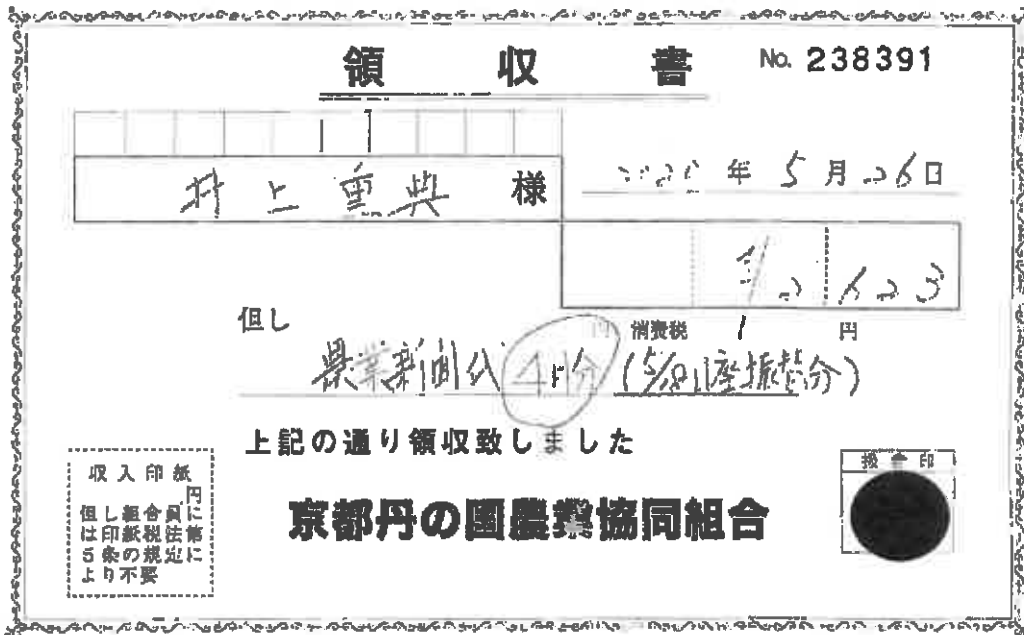 領収書 No. 238391
井上重典 様
年 5月26日
2 623
但し
円 消費税 円
農業新聞代 4月分 (5/8口座振替分)
上記の通り領収致しました
収入印紙
円
但し組合員に
は印紙税法第
5条の規定に
より不要
京都丹の国農業協同組合
扱者印